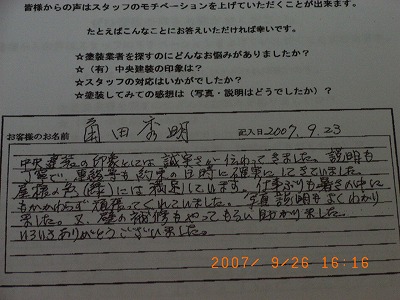 皆様からの声はスタッフのモチベーションを上げていただくことが出来ます。
たとえばこんなことにお答えいただければ幸いです。
☆塗装業者を探すのにどんなお悩みがありましたか?
☆(有)中央建装の印象は?
☆スタッフの対応はいかがでしたか?
☆塗装してみての感想は(写真・説明はどうでしたか)?
お客様のお名前 角田秀明 記入日2007.9.23
中央建装の印象としては誠実さが伝わってきました。説明も
丁寧で、連絡等も約束の日時に確実にしてきていました。
屋根の色(緑)には満足しています。仕事ぶりも暑さの中にも
かかわらず頑張ってくれていました。写真説明もよくわかり
ました。又、壁の補修もやってもらい助かりました。
いろいろありがとうございました。
2007/ 9/26 16:16